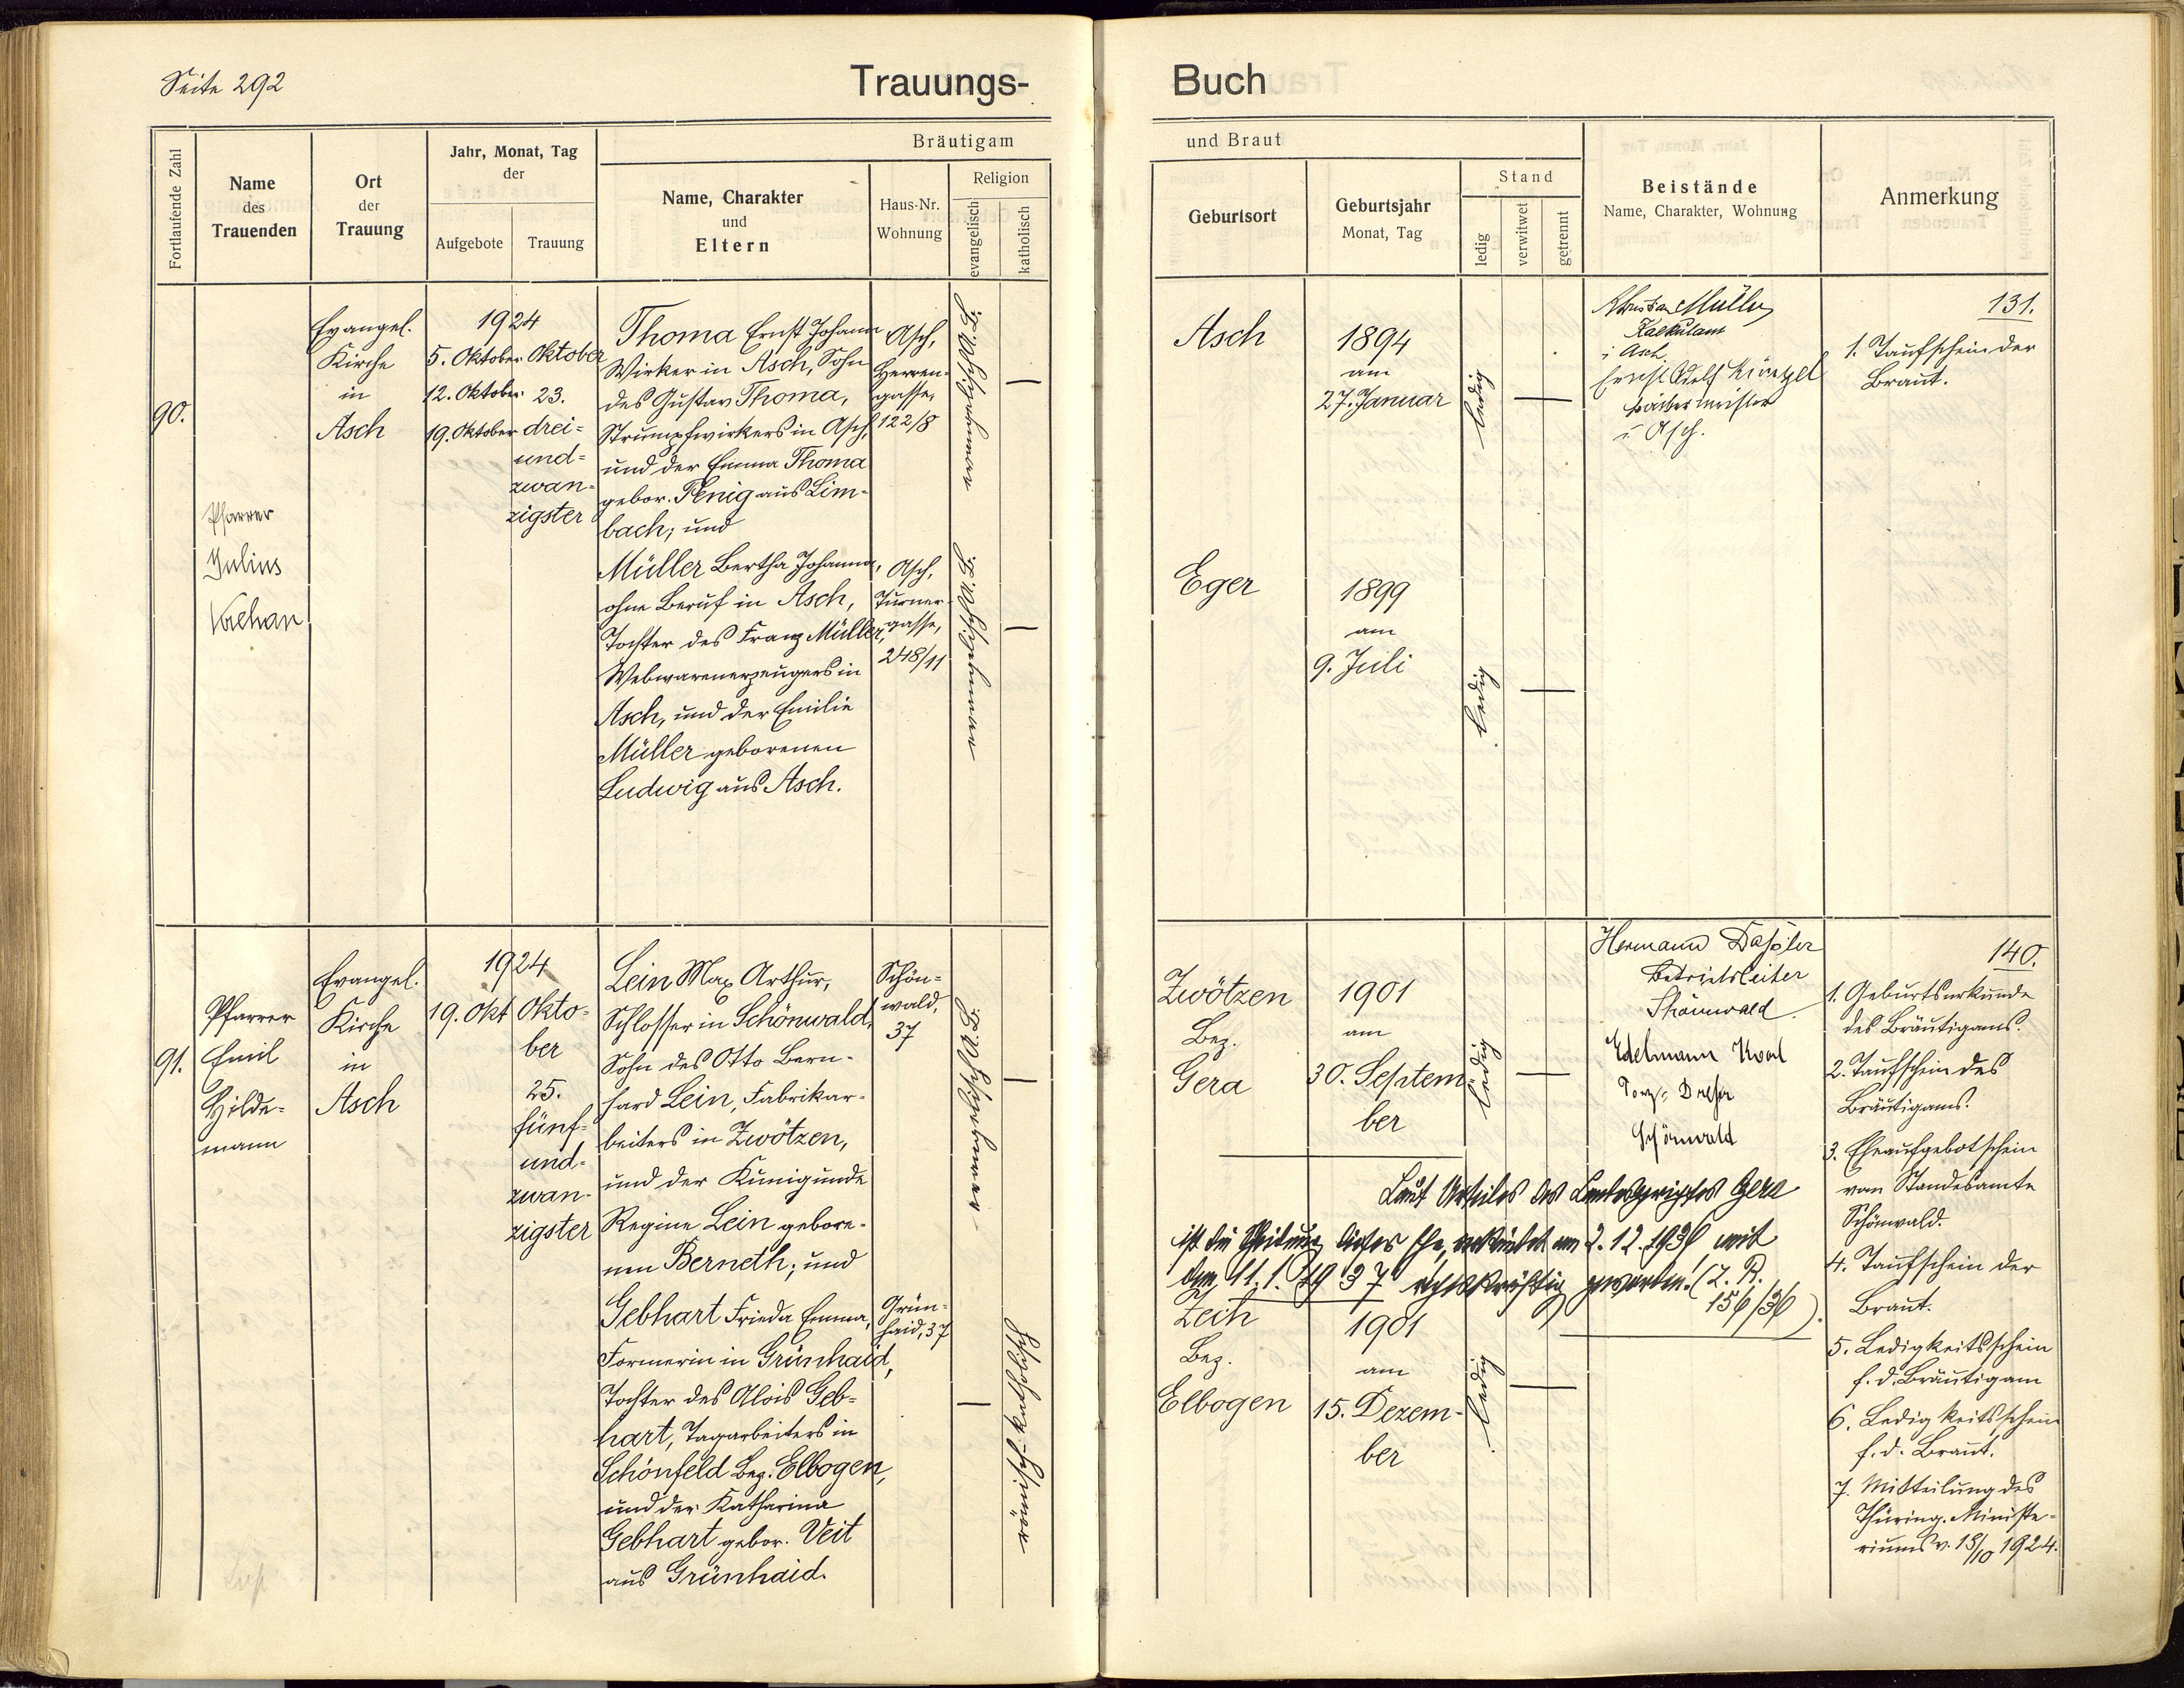 Seite 292
Trauungs-
Fortlaufende Zahl
Name
des
Trauenden
Ort
der
Trauung
Jahr, Monat, Tag
der
Aufgebote
Trauung
Bräutigam
Name, Charakter
und
Eltern
Haus-Nr.
Wohnung
Religion
evangelisch
katholisch
90.
Pfarrer
Julius
Evangel.
Kirche
in
Asch
1924
5. Oktober
12. Oktober
19. Oktober
Oktober
23.
drei=
und=
zwan=
zigster
Thoma Ernst Johann
Wirker in Asch, Sohn
des Gustav Thoma,
Strumpfwirkers in Asch,
und der Emma Thoma
gebor. Penig aus Lim-
bach; und
Müller Bertha Johanna,
ohne Beruf in Asch,
Tochter des Franz Müller,
Webwarenerzeugers in
Asch, und der Emilie
Müller geborenen
Ludwig aus Asch.
Asch,
Herren-
gasse,
122/8
Asch,
Turner-
gasse,
248/11
—
—
91.
Pfarrer
Emil
Hilde=
mann
Evangel.
Kirche
in
Asch
1924
19. Okt
Okto=
ber
25.
fünf=
und=
zwan-
zigster
Lein Max Arthur,
Schlosser in Schönwald,
Sohn des Otto Bern-
hard Lein, Fabrikar-
beiters in Zwötzen,
und der Kunigunde
Regine Lein gebore-
nen Berneth; und
Gebhart Frieda Emma,
Formerin in Grünhaid,
Tochter des Alois Geb=
hart, Tagarbeiters in
Schönfeld Bez. Elbogen,
und der Katharina
Gebhart gebor. Veit
aus Grünhaid.
Schön=
wald,
37
Grün-
haid, 37
—
—
römisch-katholisch
Buch
und Braut
Geburtsort
Geburtsjahr
Monat, Tag
Stand
ledig
verwitwet
getrennt
Beistände
Name, Charakter, Wohnung
Anmerkung
Asch
1894
am
27. Januar
ledig
—
Christian Müller
Kalkulant
i Asch
Ernst Adolf Künzel
Färbermeister
i Asch.
131.
1. Taufschein der
Braut.
Eger
1899
am
9. Juli
ledig
—
Zwötzen
Bez.
Gera
1901
am
30. Septem
ber
ledig
—
Hermann
Betriebsleiter
Schönwald
Edelmann Karl
Porz. Dreher
Schönwald
140.
1. Geburtsurkunde
des Bräutigams.
2. Taufschein des
Bräutigams.
3. Eheaufgebotschein
vom Standesamte
Schönwald.
4. Taufschein der
Braut.
5. Ledigkeitsschein
f. d. Bräutigam
6. Ledigkeitsschein
f. d. Braut.
7. Mitteilung des
Thüring. Ministe-
riums v. 18/10 1924.
Laut Urteiles des Landesgerichtes Gera
ist die Scheidung dieser Ehe, verkündet am 2.12.1936 mit
dem 11.1.1937 rechtskräftig geworden! (2. R.
156/36).
Zech
Bez.
Elbogen
1901
am
15. Dezem-
ber
ledig
—